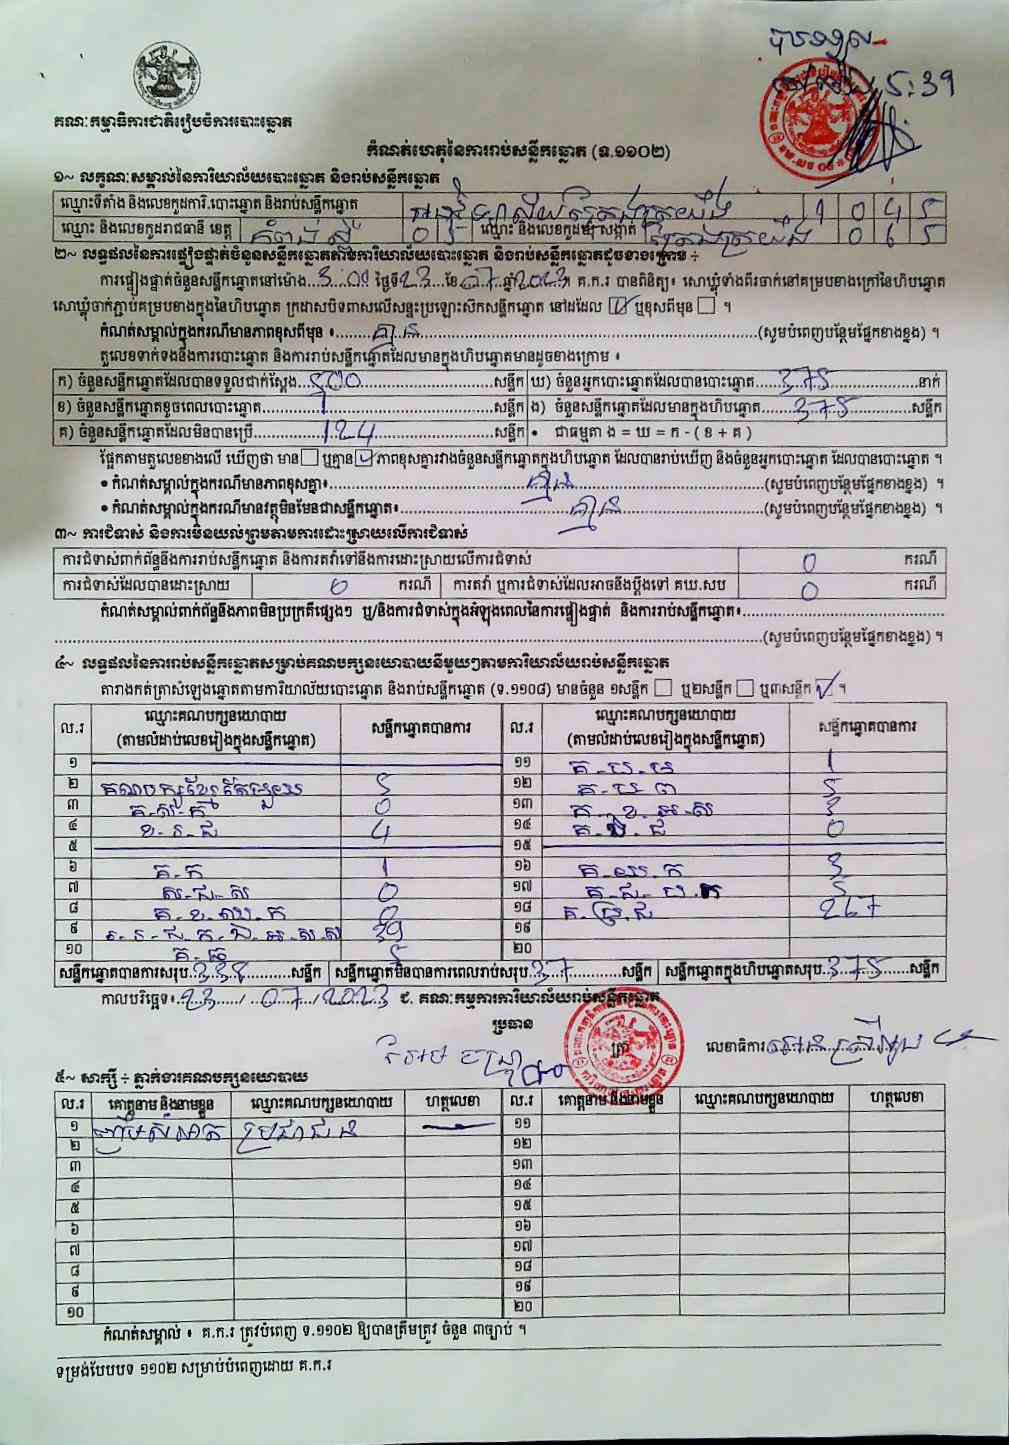 បានទទួល
5:39
គណៈកម្មាធិការជាតិរៀបចំការបោះឆ្នោត
កំណត់ហេតុនៃការរាប់សន្លឹកឆ្នោត (ទ.១១០២)
១~ លក្ខណៈសម្គាល់នៃការិយាល័យបោះឆ្នោត និងរាប់សន្លឹកឆ្នោត
ឈ្មោះទីតាំង និងលេខកូដការិ.បោះឆ្នោត និងរាប់សន្លឹកឆ្នោត 1 0 4 5
ឈ្មោះ និងលេខកូដរាជធានី ខេត្ត កំពង់ស្ពឺ 0 5 ឈ្មោះ និងលេខកូដឃុំ សង្កាត់ 0 6 5
២~ លទ្ធផលនៃការផ្ទៀងផ្ទាត់ចំនួនសន្លឹកឆ្នោតតាមការិយាល័យបោះឆ្នោត និងរាប់សន្លឹកឆ្នោតដូចខាងក្រោម ÷
ការផ្ទៀងផ្ទាត់ចំនួនសន្លឹកឆ្នោតនៅម៉ោង 3:00 ថ្ងៃទី 23 ខែ 07 ឆ្នាំ 2023 ។ គ.ក.រ បានពិនិត្យ៖ សោឃ្លុំទាំងពីរចាក់នៅគម្របខាងក្រៅនៃហិបឆ្នោត
សោឃ្លុំចាក់ភ្ជាប់គម្របខាងក្នុងនៃហិបឆ្នោត ក្រដាសបិទពាសលើសន្ទះប្រឡោះសឹកសន្លឹកឆ្នោត នៅដដែល ☑ ឬខុសពីមុន ☐ ។
កំណត់សម្គាល់ក្នុងករណីមានភាពខុសពីមុន ៖ គ្មាន (សូមបំពេញបន្ថែមផ្នែកខាងខ្នង) ។
តួលេខទាក់ទងនឹងការបោះឆ្នោត និងការរាប់សន្លឹកឆ្នោតដែលមានក្នុងហិបឆ្នោតមានដូចខាងក្រោម ៖
ក) ចំនួនសន្លឹកឆ្នោតដែលបានទទួលជាក់ស្តែង 500 សន្លឹក ឃ) ចំនួនអ្នកបោះឆ្នោតដែលបានបោះឆ្នោត 375 នាក់
ខ) ចំនួនសន្លឹកឆ្នោតខូចពេលបោះឆ្នោត 1 សន្លឹក ង) ចំនួនសន្លឹកឆ្នោតដែលមានក្នុងហិបឆ្នោត 375 សន្លឹក
គ) ចំនួនសន្លឹកឆ្នោតដែលមិនបានប្រើ 124 សន្លឹក • ជាធម្មតា ង = ឃ = ក - ( ខ + គ )
ផ្អែកតាមតួលេខខាងលើ ឃើញថា មាន ☐ ឬគ្មាន ☑ ភាពខុសគ្នារវាងចំនួនសន្លឹកឆ្នោតក្នុងហិបឆ្នោត ដែលបានរាប់ឃើញ និងចំនួនអ្នកបោះឆ្នោត ដែលបានបោះឆ្នោត ។
• កំណត់សម្គាល់ក្នុងករណីមានភាពខុសគ្នា៖ គ្មាន (សូមបំពេញបន្ថែមផ្នែកខាងខ្នង) ។
• កំណត់សម្គាល់ក្នុងករណីមានវត្ថុមិនមែនជាសន្លឹកឆ្នោត៖ គ្មាន (សូមបំពេញបន្ថែមផ្នែកខាងខ្នង) ។
៣~ ការជំទាស់ និងការមិនយល់ព្រមតាមការដោះស្រាយលើការជំទាស់
ការជំទាស់ពាក់ព័ន្ធនឹងការរាប់សន្លឹកឆ្នោត និងការតវ៉ាទៅនឹងការដោះស្រាយលើការជំទាស់ 0 ករណី
ការជំទាស់ដែលបានដោះស្រាយ 0 ករណី ការតវ៉ា ឬការជំទាស់ដែលអាចនឹងប្តឹងទៅ គឃ.សប 0 ករណី
កំណត់សម្គាល់ពាក់ព័ន្ធនឹងភាពមិនប្រក្រតីផ្សេងៗ ឬ/និងការជំទាស់ក្នុងអំឡុងពេលនៃការផ្ទៀងផ្ទាត់ និងការរាប់សន្លឹកឆ្នោត៖
(សូមបំពេញបន្ថែមផ្នែកខាងខ្នង) ។
៤~ លទ្ធផលនៃការរាប់សន្លឹកឆ្នោតសម្រាប់គណបក្សនយោបាយនីមួយៗតាមការិយាល័យរាប់សន្លឹកឆ្នោត
តារាងកត់ត្រាសំឡេងឆ្នោតតាមការិយាល័យបោះឆ្នោត និងរាប់សន្លឹកឆ្នោត (ទ.១១០៨) មានចំនួន ១សន្លឹក ☐ ឬ២សន្លឹក ☐ ឬ៣សន្លឹក ☑ ។
ល.រ ឈ្មោះគណបក្សនយោបាយ (តាមលំដាប់លេខរៀងក្នុងសន្លឹកឆ្នោត) សន្លឹកឆ្នោតបានការ ល.រ ឈ្មោះគណបក្សនយោបាយ (តាមលំដាប់លេខរៀងក្នុងសន្លឹកឆ្នោត) សន្លឹកឆ្នោតបានការ
១ ១១ 1
២ 5 ១២ 5
៣ 0 ១៣ គ.ខ.អ.ស 3
៤ ខ.រ.ជ 4 ១៤ 0
៥ ១៥
៦ គ.ក 1 ១៦ គ.យ.ក 3
៧ ស.ជ.ស 0 ១៧ 5
៨ 0 ១៨ គ.ប្រ.ជ 267
៩ 39 ១៩
១០ 5 ២០
សន្លឹកឆ្នោតបានការសរុប 338 សន្លឹក សន្លឹកឆ្នោតមិនបានការពេលរាប់សរុប 37 សន្លឹក សន្លឹកឆ្នោតក្នុងហិបឆ្នោតសរុប 375 សន្លឹក
កាលបរិច្ឆេទ៖ 23 / 07 / 2023 ជ. គណៈកម្មការការិយាល័យរាប់សន្លឹកឆ្នោត
ប្រធាន ត្រា លេខាធិការ
៥~ សាក្សី ÷ ភ្នាក់ងារគណបក្សនយោបាយ
ល.រ គោត្តនាម និងនាមខ្លួន ឈ្មោះគណបក្សនយោបាយ ហត្ថលេខា ល.រ គោត្តនាម និងនាមខ្លួន ឈ្មោះគណបក្សនយោបាយ ហត្ថលេខា
១ ប្រជាជន ១១
២ ១២
៣ ១៣
៤ ១៤
៥ ១៥
៦ ១៦
៧ ១៧
៨ ១៨
៩ ១៩
១០ ២០
កំណត់សម្គាល់ ៖ គ.ក.រ ត្រូវបំពេញ ទ.១១០២ ឱ្យបានត្រឹមត្រូវ ចំនួន ៣ច្បាប់ ។
ទម្រង់បែបបទ ១១០២ សម្រាប់បំពេញដោយ គ.ក.រ